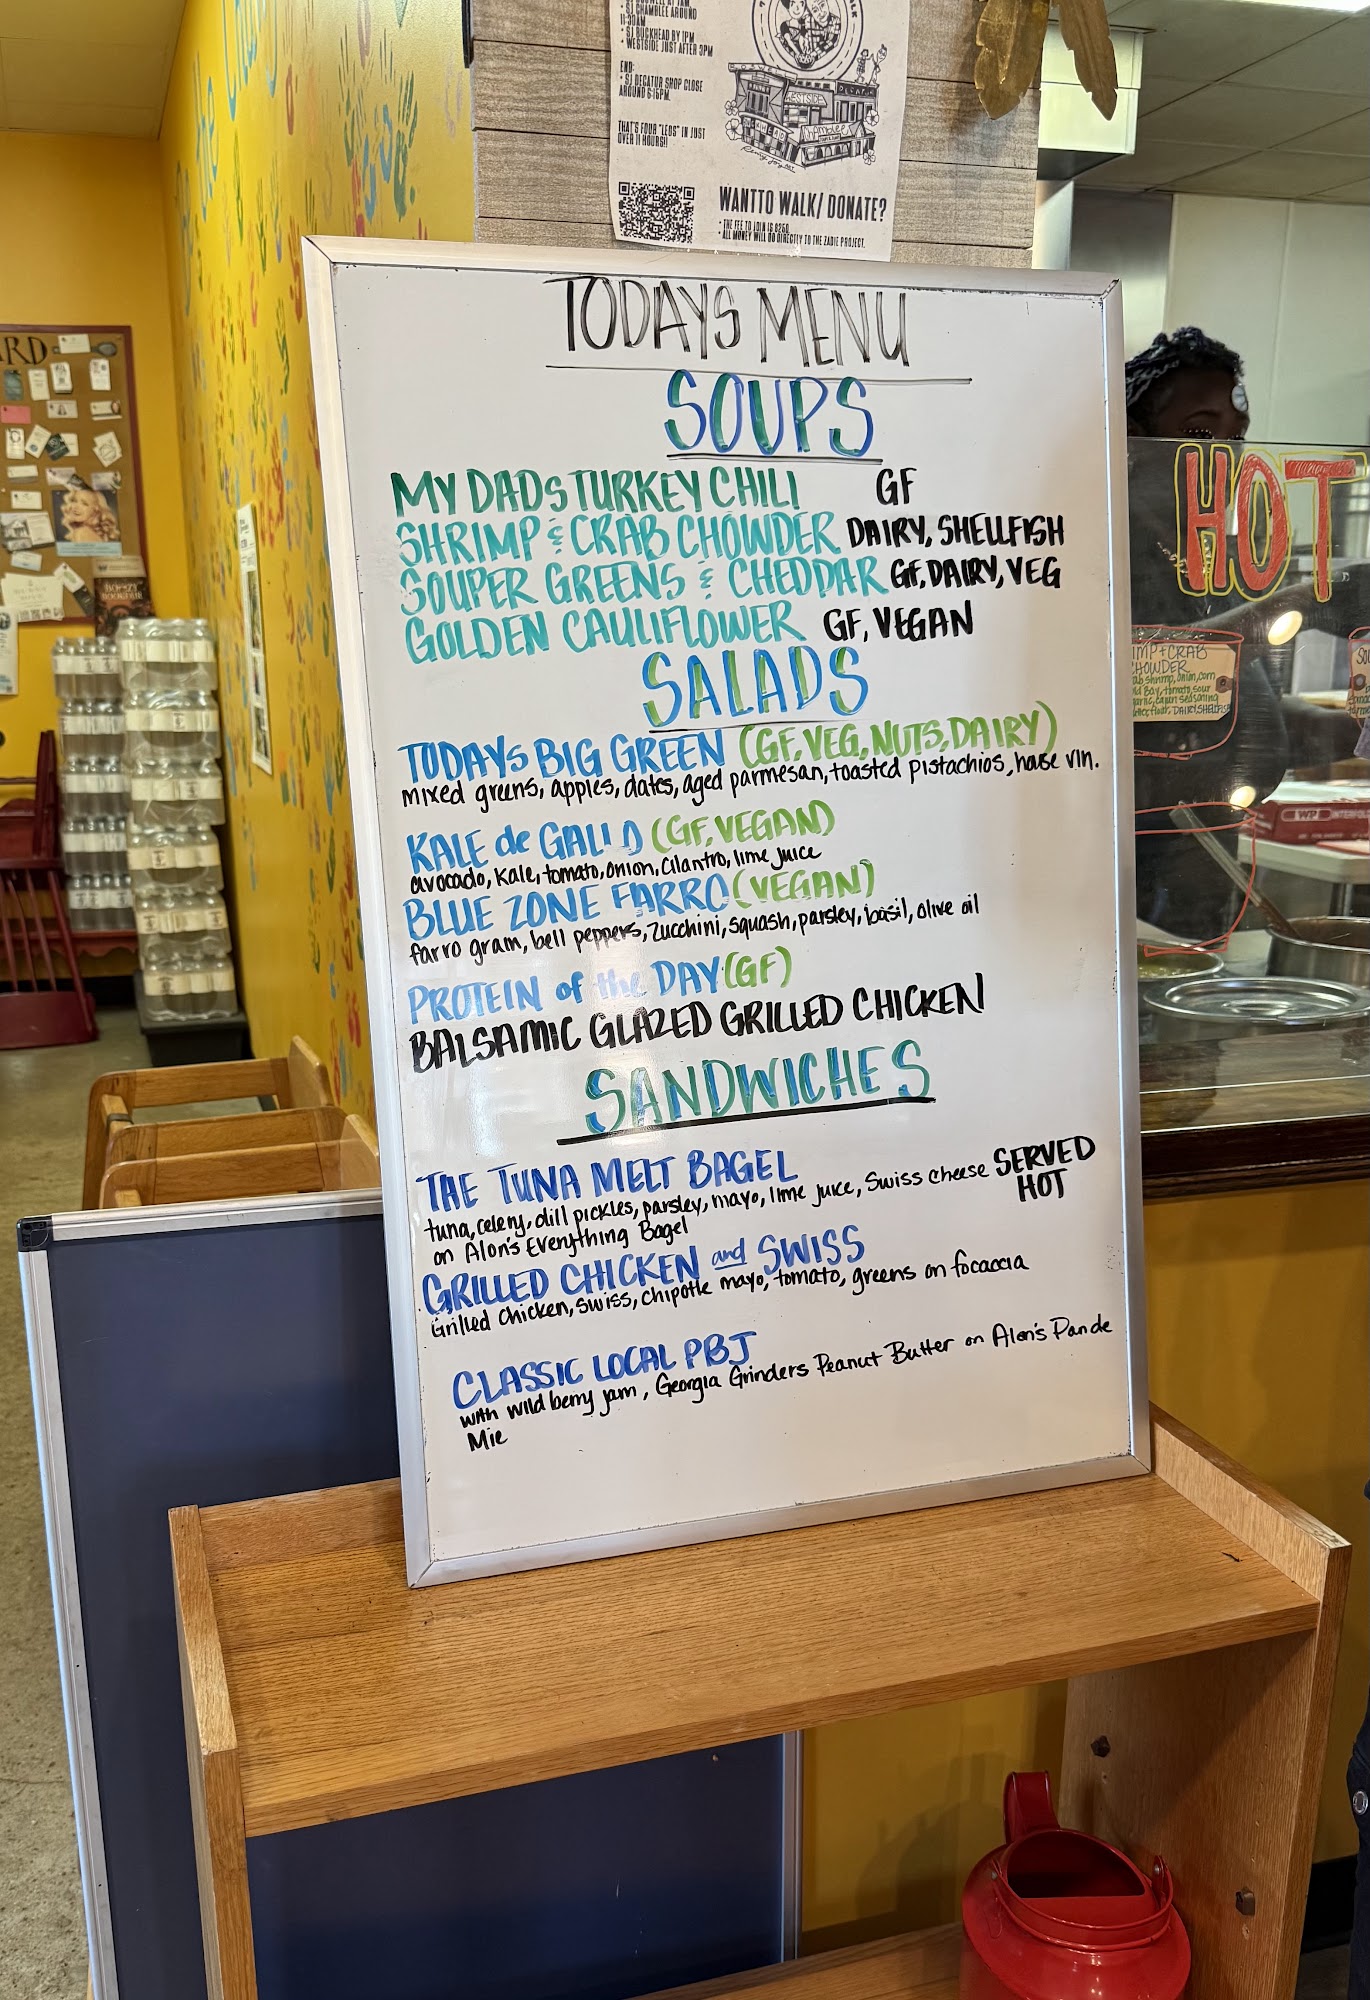 SJ CHAMBLEE AROUND
11:30AM
• SJ BUCKHEAD BY 1PM
• WESTSIDE JUST AFTER 3PM
END:
• SJ DECATUR SHOP CLOSE
AROUND 6:15PM.
THAT'S FOUR "LEGS" IN JUST
OVER 11 HOURS!!
WANT TO WALK/ DONATE?
• THE FEE TO JOIN IS $250
• ALL MONEY WILL GO DIRECTLY TO THE ZADIE PROJECT.
TODAYS MENU
SOUPS
MY DADS TURKEY CHILI GF
SHRIMP & CRAB CHOWDER DAIRY, SHELLFISH
SOUPER GREENS & CHEDDAR GF, DAIRY, VEG
GOLDEN CAULIFLOWER GF, VEGAN
SALADS
TODAYS BIG GREEN (GF, VEG, NUTS, DAIRY)
mixed greens, apples, dates, aged parmesan, toasted pistachios, house vin.
KALE de GALLO (GF, VEGAN)
avocado, kale, tomato, onion, cilantro, lime juice
BLUE ZONE FARRO (VEGAN)
farro gram, bell peppers, zucchini, squash, parsley, basil, olive oil
PROTEIN of the DAY (GF)
BALSAMIC GLAZED GRILLED CHICKEN
SANDWICHES
THE TUNA MELT BAGEL
tuna, celery, dill pickles, parsley, mayo, lime juice, Swiss cheese SERVED HOT
on Alon's Everything Bagel
GRILLED CHICKEN and SWISS
Grilled Chicken, Swiss, chipotle mayo, tomato, greens on focaccia
CLASSIC LOCAL PBJ
with wild berry jam, Georgia Grinders Peanut Butter on Alon's Pan de
Mie
HOT
CHOWDER